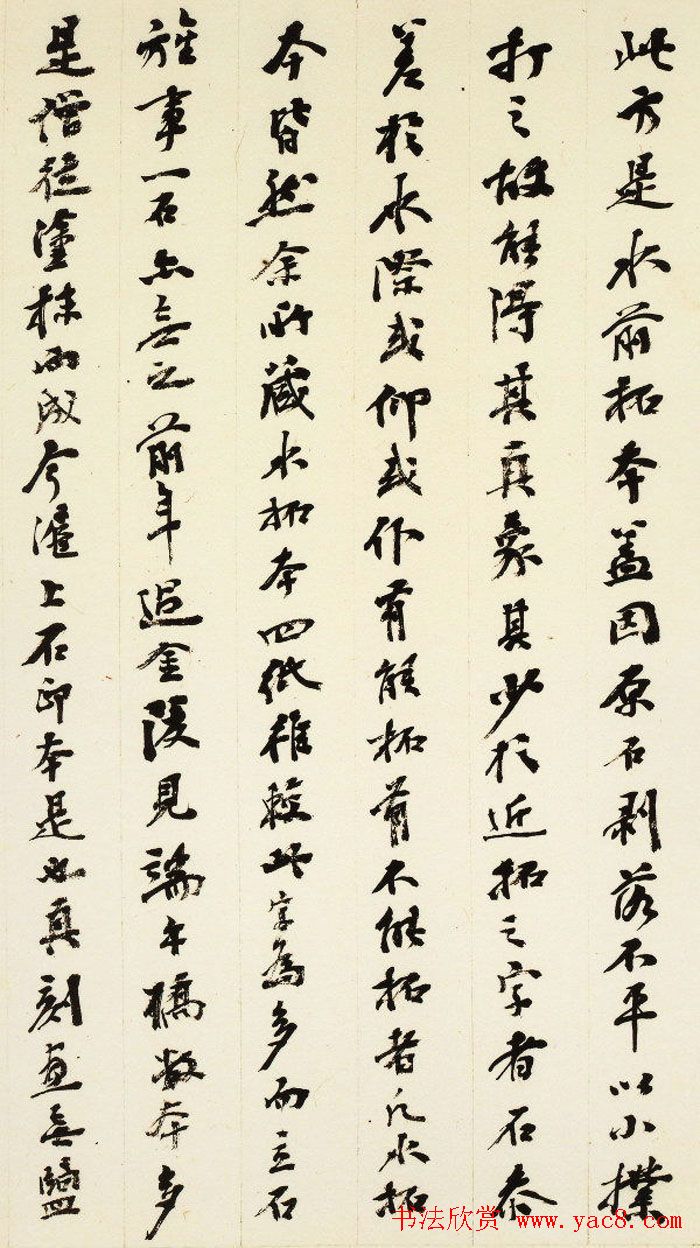 此方是水前拓本盖因原石剥落不平以小撲
打之故能得其真象其少於近拓之字者石泰
差於水際或仰或仆有能拓有不能拓者凡水拓
本皆然余所蔵水拓本四紙雖較此字為多而立石
旌事一石亦無之前年過金陵見端午橋數本多
是僧徒塗抹而成今滬上石印本是也真刻直無鹽
书法欣赏 www.yac8.com